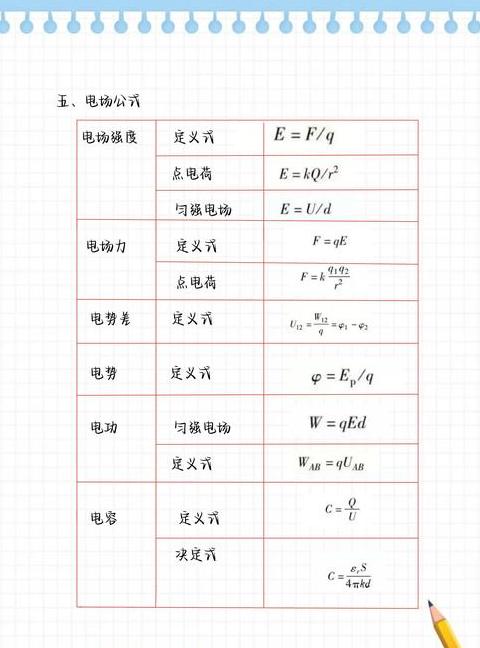 五、电场公式
电场强度 定义式 E = F/q
点电荷 E = kQ/r²
匀强电场 E = U/d
电场力 定义式 F = qE
点电荷 F = k q₁q₂/r²
电势差 定义式 U₁₂ = W₁₂/q = φ₁ − φ₂
电势 定义式 φ = Eₚ/q
电功 匀强电场 W = qEd
定义式 W_AB = qU_AB
电容 定义式 C = Q/U
决定式 C = εᵣS/4πkd